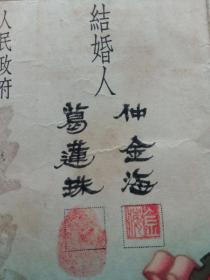 結婚人
仲金海
葛蓮珠
人民政府